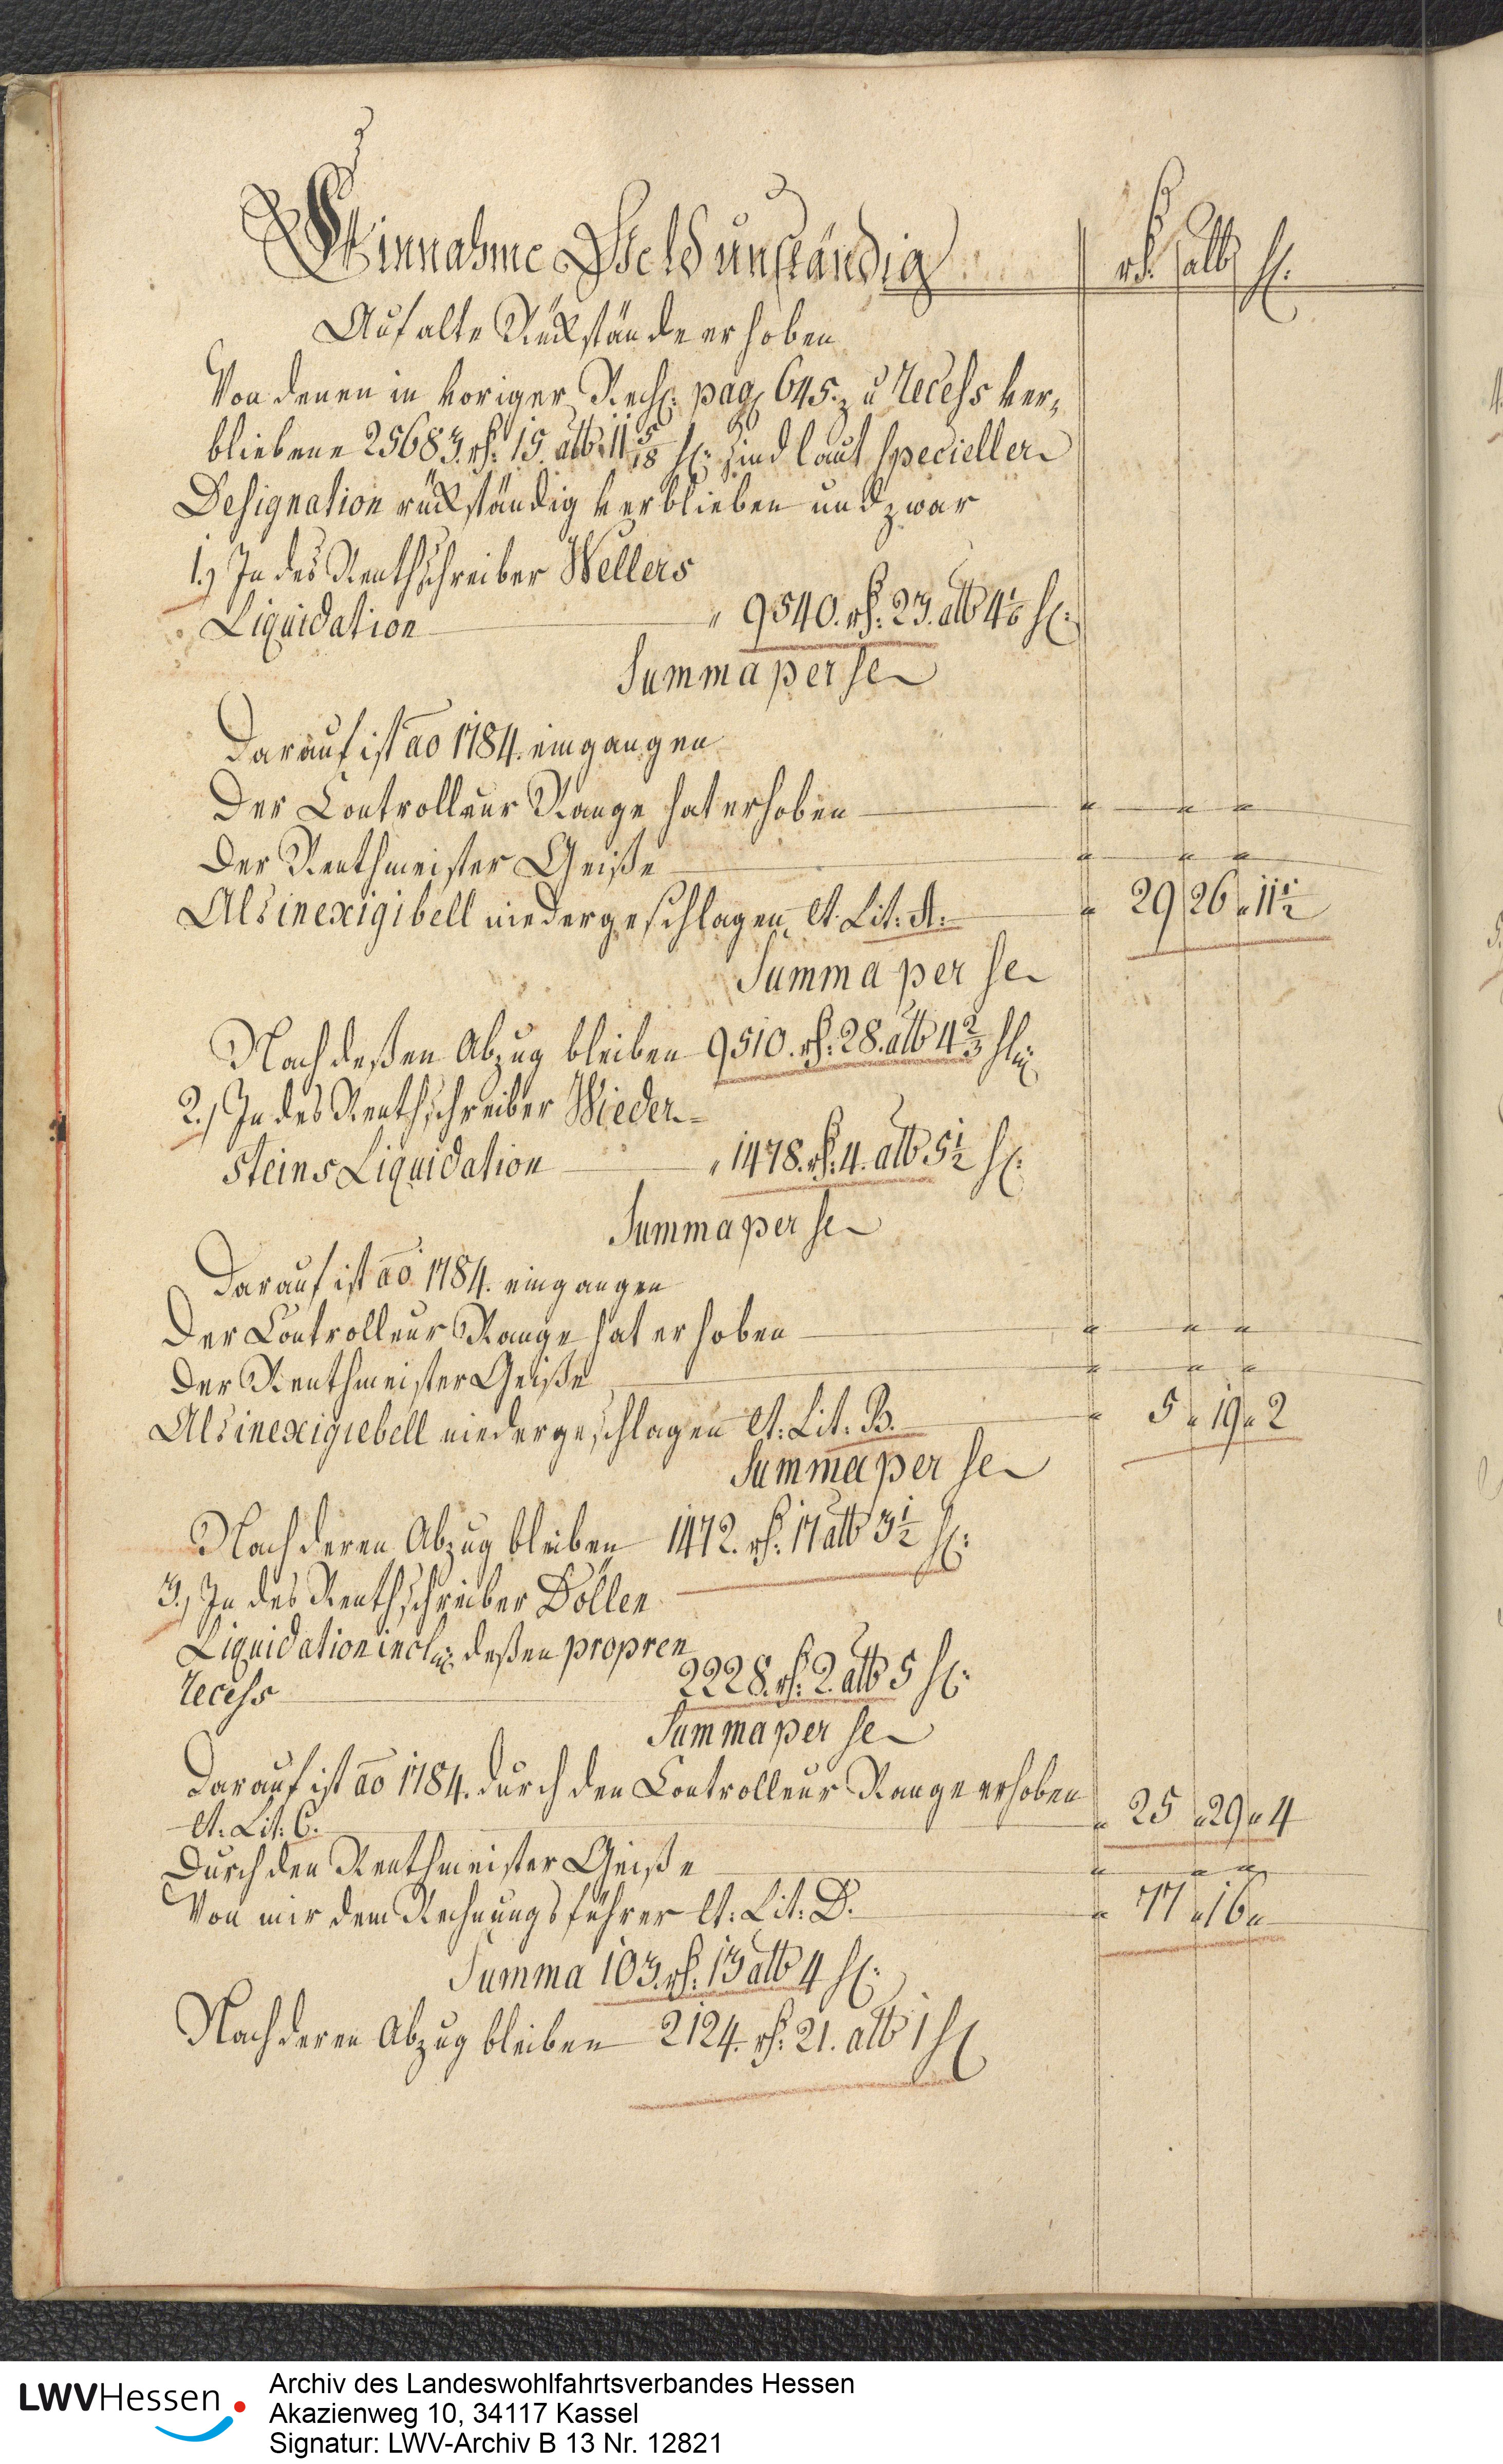 Einnahme Geld unständig rh. alb hl.
Auf alte Rückstände erhoben
Von denen in voriger Rech: pag: 645. zu Recess ver-
bliebene 25683. rh: 15. alb 11 5/18 hl: sind laut specieller
Designation rückständig verblieben und zwar
1.) In des Renthschreiber Wellers
Liquidation " 9540. rh: 23. alb 4 1/6 hl:
Summa per se
Darauf ist ao 1784. eingangen
Der Controlleur Range hat erhoben " " "
Der Renthmeister Geiße " " "
Als inexigibell niedergeschlagen, ct. Lit: A. " 29 26 " 11 1/2
Summa per se
Nach deßen Abzug bleiben 9510. rh: 28. alb 4 2/3 hl:
2.) In des Renthschreiber Wieder-
steins Liquidation " 1478. rh: 4. alb 5 1/2 hl:
Summa per se
Darauf ist ao 1784. eingangen
Der Controlleur Range hat erhoben " " "
Der Renthmeister Geiße " " "
Als inexigiebell niedergeschlagen ct: Lit: B. " 5 " 19 " 2
Summa per se
Nach deren Abzug bleiben 1472. rh: 17 alb 3 1/2 hl:
3.) In des Renthschreiber Döllen
Liquidation incl: deßen propren
Recess 2228. rh: 2. alb 5 hl:
Summa per se
Darauf ist ao 1784. durch den Controlleur Range erhoben
ct: Lit: C. " 25 " 29 " 4
Durch den Renthmeister Geiße " " "
Von mir dem Rechnungsführer ct: Lit: D. " 77 " 16 "
Summa 103. rh: 13 alb 4 hl:
Nach deren Abzug bleiben 2124. rh: 21. alb 1 hl
LWVHessen
Archiv des Landeswohlfahrtsverbandes Hessen
Akazienweg 10, 34117 Kassel
Signatur: LWV-Archiv B 13 Nr. 12821